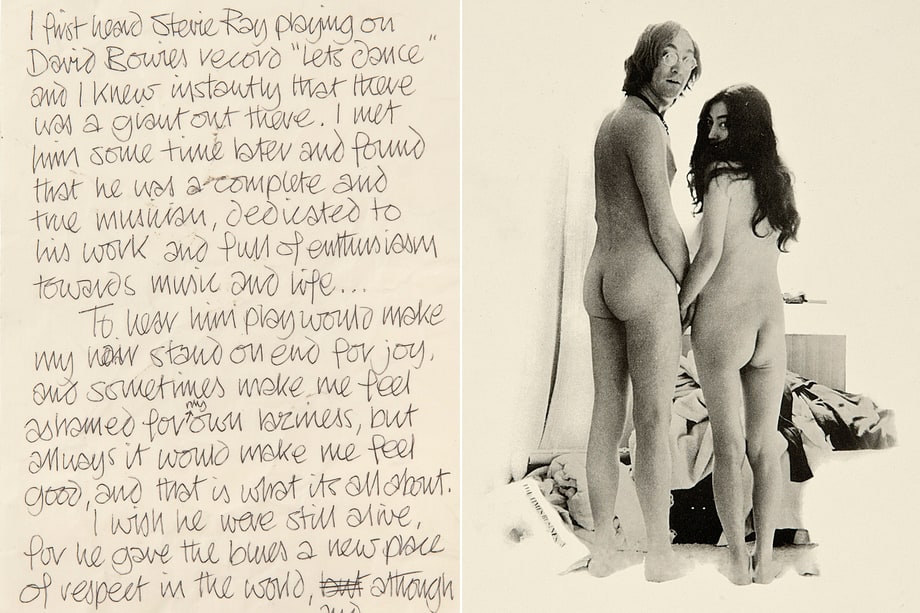 I first heard Stevie Ray playing on
David Bowies record "Lets dance"
and I knew instantly that there
was a giant out there. I met
him some time later and found
that he was a complete and
true musician, dedicated to
his work and full of enthusiasm
towards music and life...
To hear him play would make
my hair stand on end for joy,
and sometimes make me feel
ashamed for my own laziness, but
allways it would make me feel
good, and that is what its all about.
I wish he were still alive,
for he gave the blues a new place
of respect in the world, but although
and
THE TIMES BUSINESS